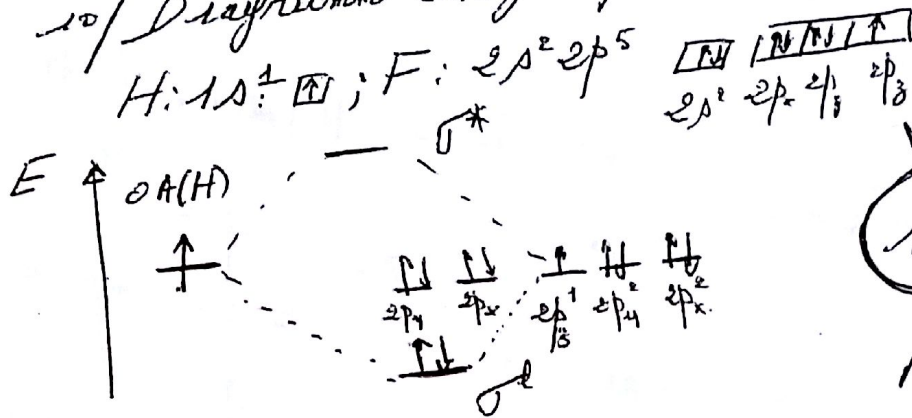 10/ Diagramme
H: 1s¹ ↑ ; F: 2s² 2p⁵
2s² 2px 2py 2pz
σ*
E OA(H)
2py 2px 2p¹z 2p²y 2p²x
σ